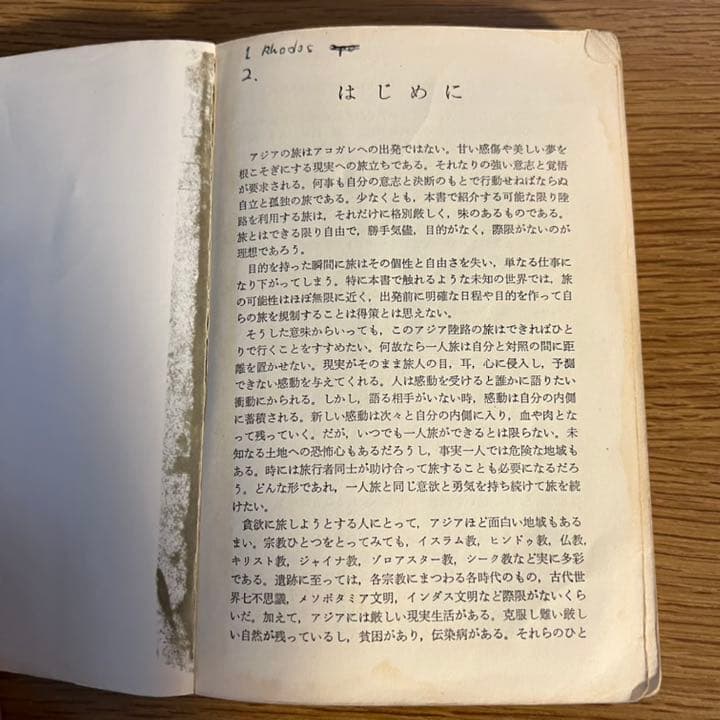 1. Rhodos
2.
はじめに
アジアの旅はアコガレへの出発ではない。甘い感傷や美しい夢を
根こそぎにする現実への旅立ちである。それなりの強い意志と覚悟
が要求される。何事も自分の意志と決断のもとで行動せねばならぬ
自立と孤独の旅である。少なくとも，本書で紹介する可能な限り陸
路を利用する旅は，それだけに格別厳しく，味のあるものである。
旅とはできる限り自由で，勝手気儘，目的がなく，際限がないのが
理想であろう。
目的を持った瞬間に旅はその個性と自由さを失い，単なる仕事に
なり下がってしまう。特に本書で触れるような未知の世界では，旅
の可能性はほぼ無限に近く，出発前に明確な日程や目的を作って自
らの旅を規制することは得策とは思えない。
そうした意味からいっても，このアジア陸路の旅はできればひと
りで行くことをすすめたい。何故なら一人旅は自分と対照の間に距
離を置かせない。現実がそのまま旅人の目，耳，心に侵入し，予測
できない感動を与えてくれる。人は感動を受けると誰かに語りたい
衝動にかられる。しかし，語る相手がいない時，感動は自分の内側
に蓄積される。新しい感動は次々と自分の内側に入り，血や肉とな
って残っていく。だが，いつでも一人旅ができるとは限らない。未
知なる土地への恐怖心もあるだろうし，事実一人では危険な地域も
ある。時には旅行者同士が助け合って旅することも必要になるだろ
う。どんな形であれ，一人旅と同じ意欲と勇気を持ち続けて旅を続
けたい。
貪欲に旅しようとする人にとって，アジアほど面白い地域もある
まい。宗教ひとつをとってみても，イスラム教，ヒンドゥ教，仏教，
キリスト教，ジャイナ教，ゾロアスター教，シーク教など実に多彩
である。遺跡に至っては，各宗教にまつわる各時代のもの，古代世
界七不思議，メソポタミア文明，インダス文明など際限がないくら
いだ。加えて，アジアには厳しい現実生活がある。克服し難い厳し
い自然が残っているし，貧困があり，伝染病がある。それらのひと